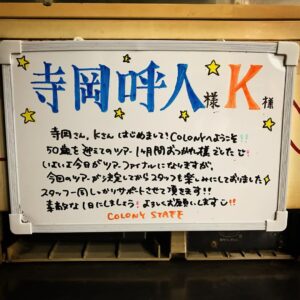 寺岡呼人様 K様
寺岡さん、Kさん はじめまして! COLONYへようこそ!!
50歳を迎えてのツアー 1ヶ月間おつかれ様でした
いよいよ今日がツアーファイナルになりますが、
今回のツアーが決定してからスタッフも楽しみにしておりました
スタッフ一同しっかりサポートさせて頂きます!!
素敵な1日にしましょう! よろしくお願いします!!
COLONY STAFF